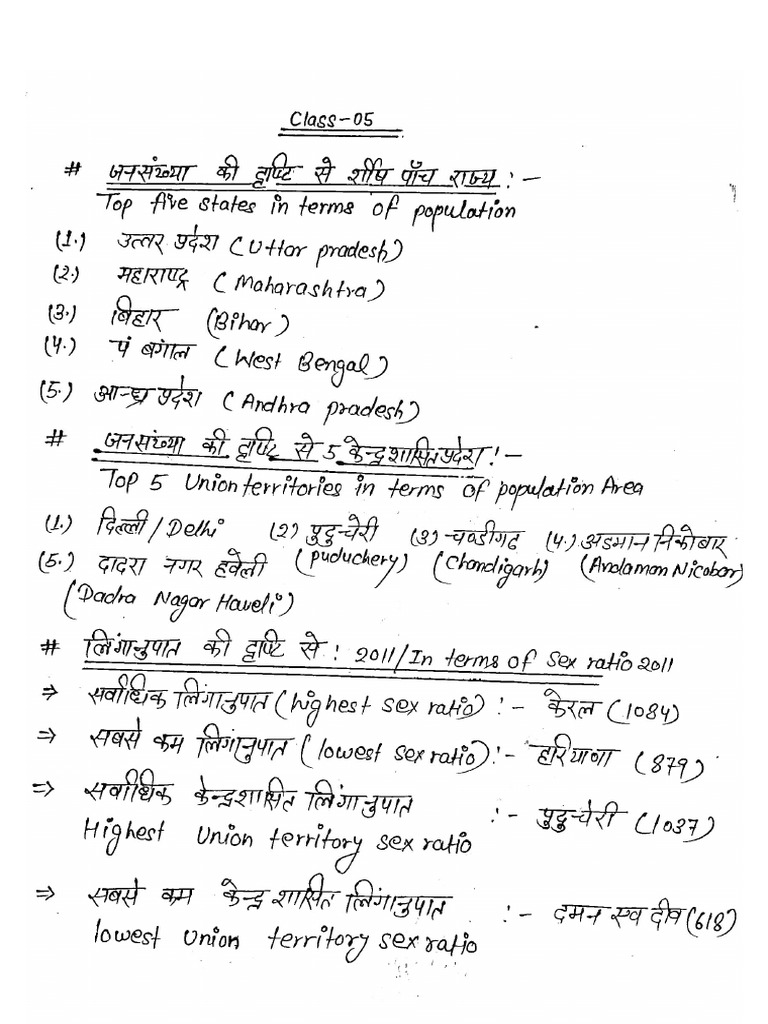 Class-05
# जनसंख्या की दृष्टि से शीर्ष पाँच राज्य :-
Top five states in terms of population
(1.) उत्तर प्रदेश (Uttar pradesh)
(2.) महाराष्ट्र (Maharashtra)
(3.) बिहार (Bihar)
(4.) पं बंगाल (West Bengal)
(5.) आन्ध्र प्रदेश (Andhra pradesh)
# जनसंख्या की दृष्टि से 5 केन्द्रशासित प्रदेश :-
Top 5 Union territories in terms of population Area
(1.) दिल्ली/Delhi (2) पुदुचेरी (3) चण्डीगढ (4.) अडमान निकोबार
(5.) दादरा नगर हवेली (puduchery) (Chandigarh) (Andaman Nicobar)
(Dadra Nagar Haveli)
# लिंगानुपात की दृष्टि से : 2011/In terms of Sex ratio 2011
⇒ सर्वाधिक लिंगानुपात (highest sex ratio) :- केरल (1084)
⇒ सबसे कम लिंगानुपात (lowest sex ratio) :- हरियाणा (879)
⇒ सर्वाधिक केन्द्रशासित लिंगानुपात :- पुदुचेरी (1037)
Highest Union territory sex ratio
⇒ सबसे कम केन्द्र शासित लिंगानुपात :- दमन एव दीव (618)
lowest Union territory sex ratio